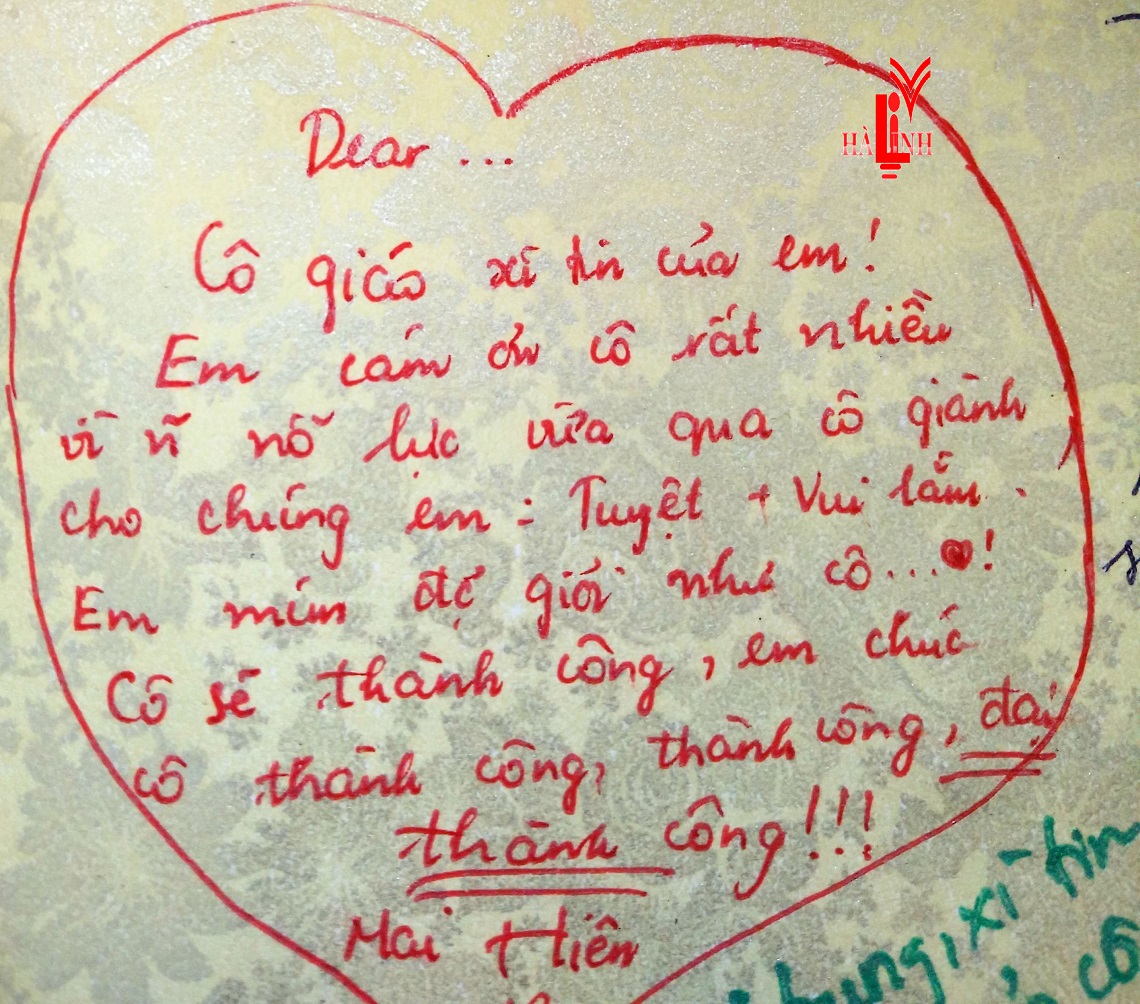 HÀ LINH
Dear ...
Cô giáo xì tin của em!
Em cám ơn cô rất nhiều
vì nỗ lực vừa qua cô giành
cho chúng em : Tuyệt + Vui lắm.
Em mún đc giỏi như cô...♥!
Cô sẽ thành công, em chúc
cô thành công, thành công, đại
thành công!!!
Mai Hiên
xì tin
cô